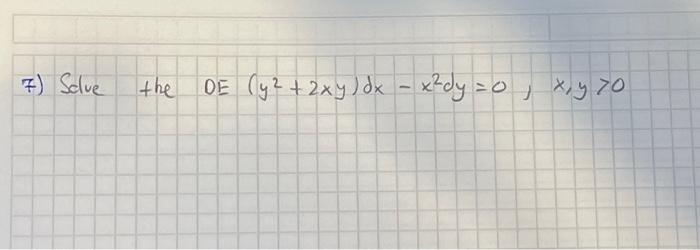 7) Solve the DE (y² + 2xy)dx - x²dy = 0 , x,y >0